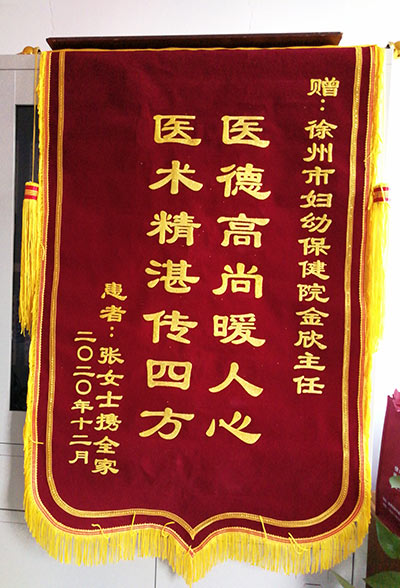 赠：徐州市妇幼保健院金欣主任
医德高尚暖人心
医术精湛传四方
患者：张女士携全家
二〇二〇年十二月